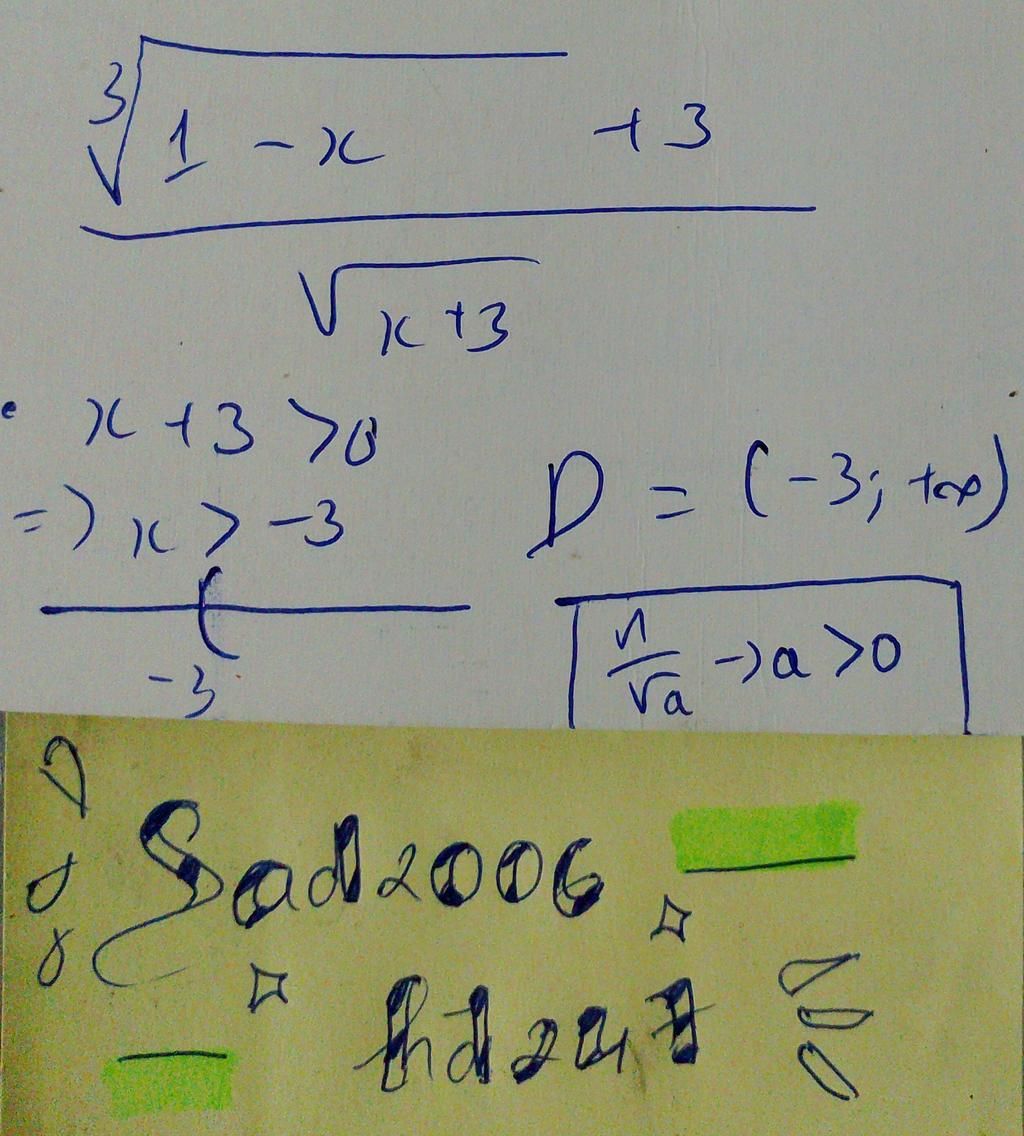 ∛(1 - x) + 3
√(x+3)
• x + 3 > 0
=> x > -3
D = (-3; +∞)
-3
n/√a -> a > 0
Sad2006
hd247